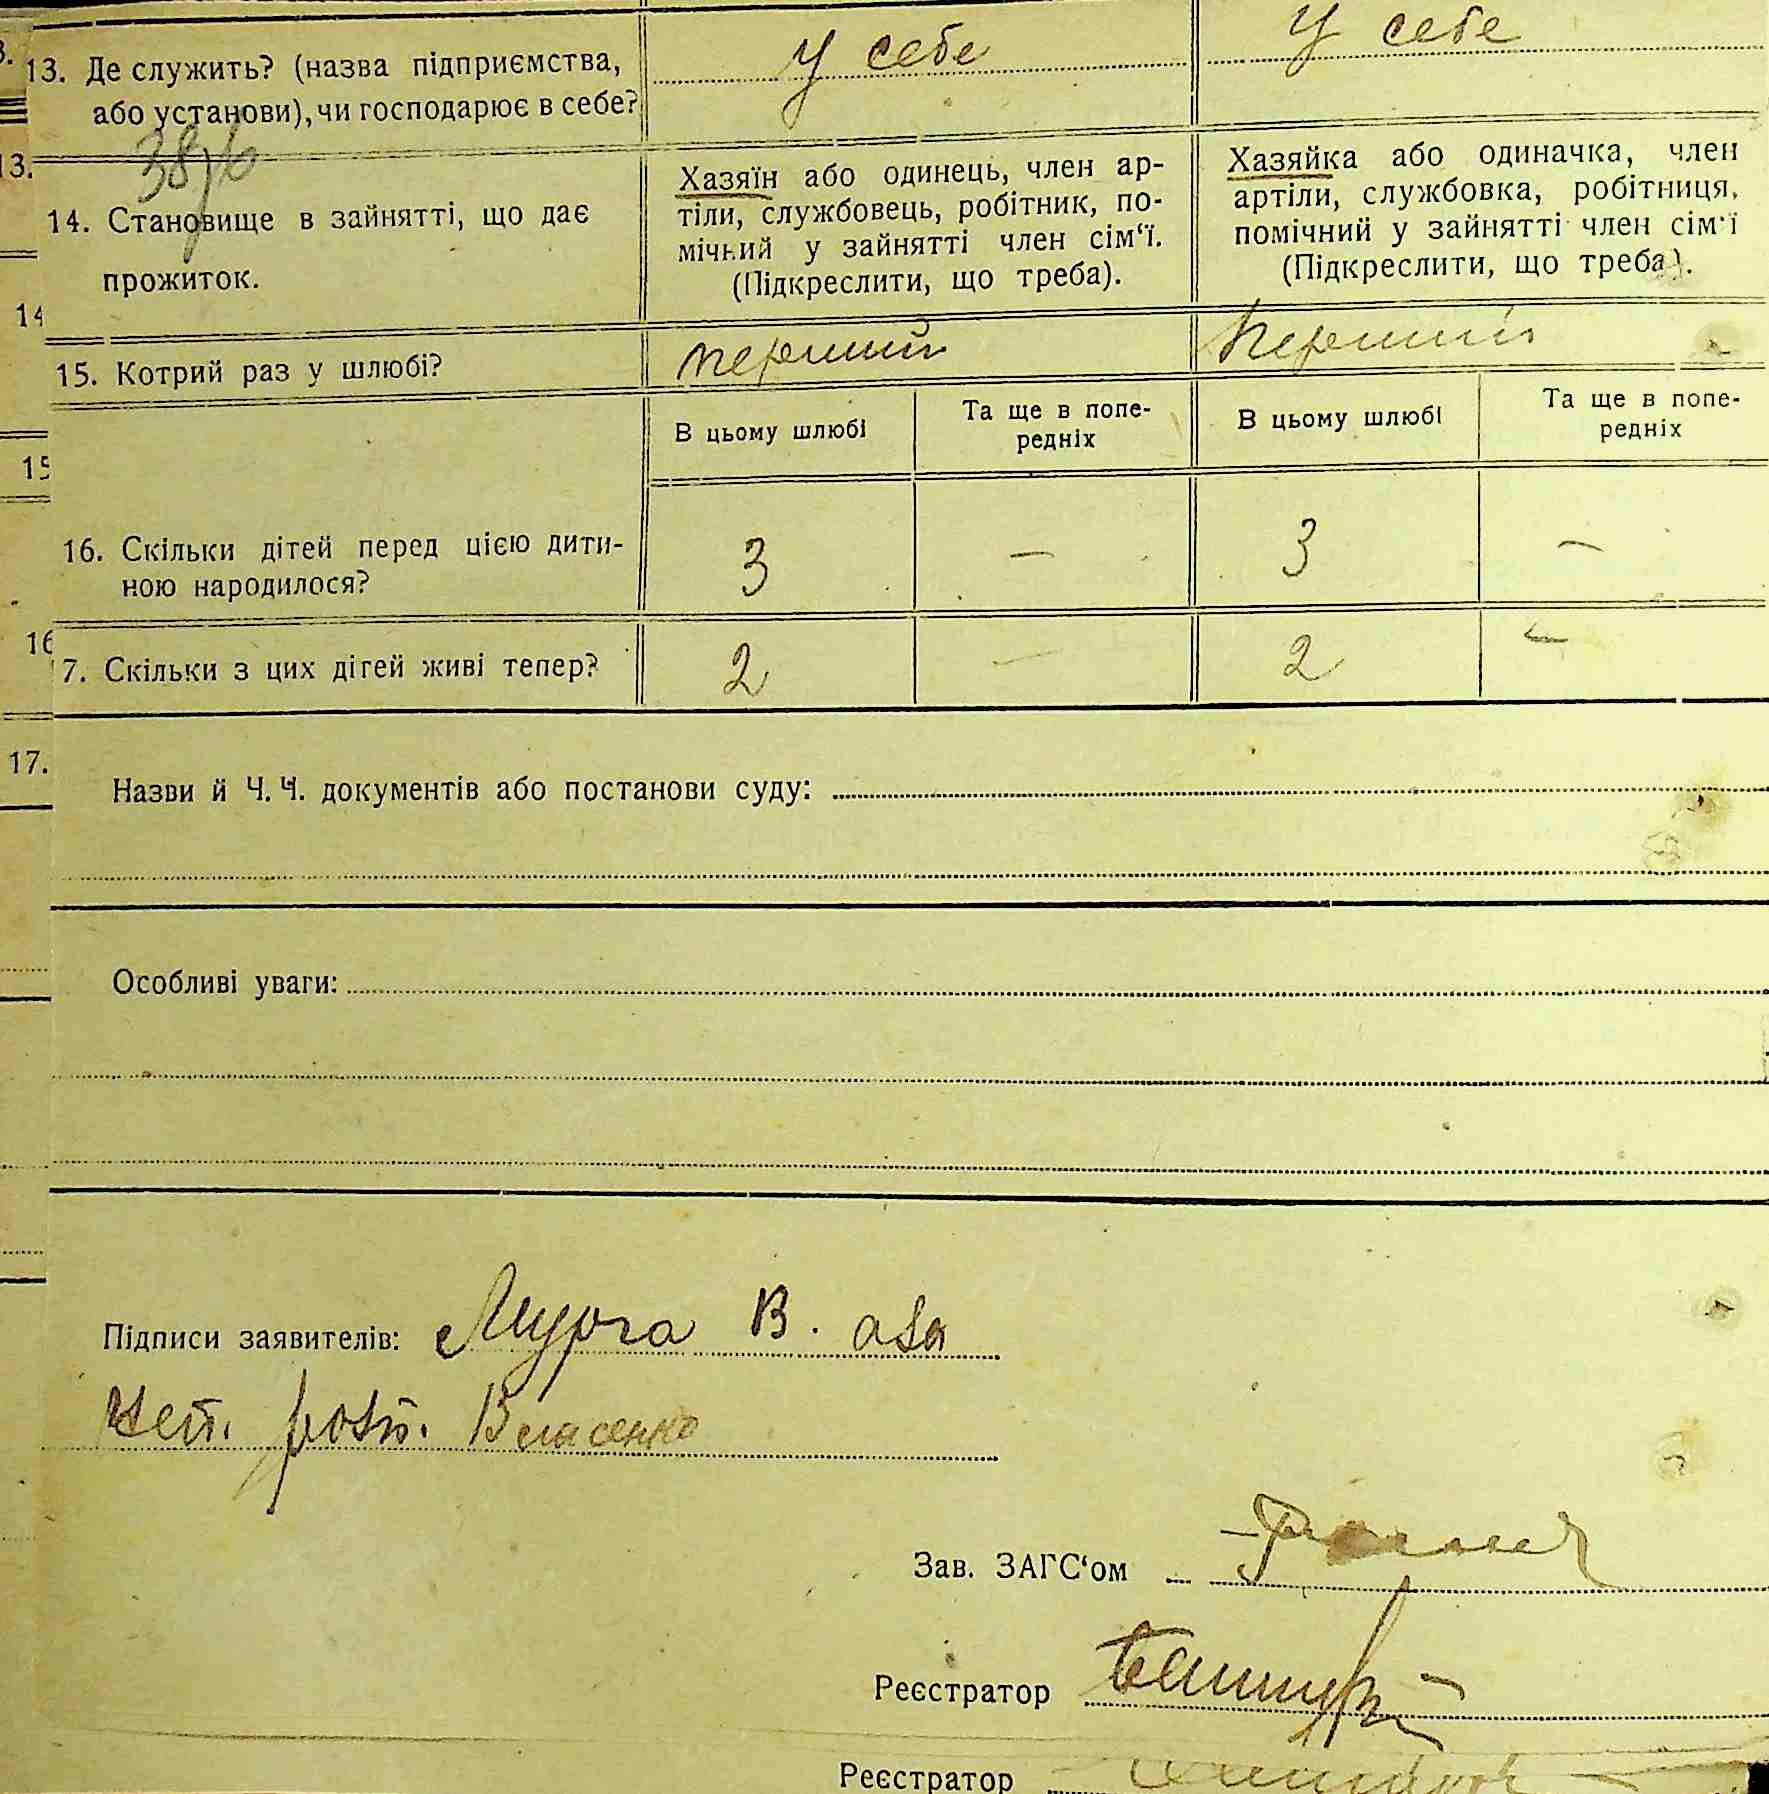 13. Де служить? (назва підприємства, у себе у себе
або установи), чи господарює в себе?
14. Становище в зайнятті, що дає прожиток.
Хазяїн або одинець, член ар-
тіли, службовець, робітник, по-
мічний у зайнятті член сім‘ї.
(Підкреслити, що треба).
Хазяйка або одиначка, член
артіли, службовка, робітниця,
помічний у зайнятті член сім‘ї
(Підкреслити, що треба).
15. Котрий раз у шлюбі? перший перший
В цьому шлюбі
Та ще в попе-
редніх
В цьому шлюбі
Та ще в попе-
редніх
16. Скільки дітей перед цією дити- 3 — 3 —
ною народилося?
7. Скільки з цих дітей живі тепер? 2 — 2 —
Назви й Ч. Ч. документів або постанови суду:
Особливі уваги:
Підписи заявителів: Мурга В. а за
неп. розп. Власенко
Зав. ЗАГС‘ом
Реєстратор
Реєстратор
13.
14
15
16
17.